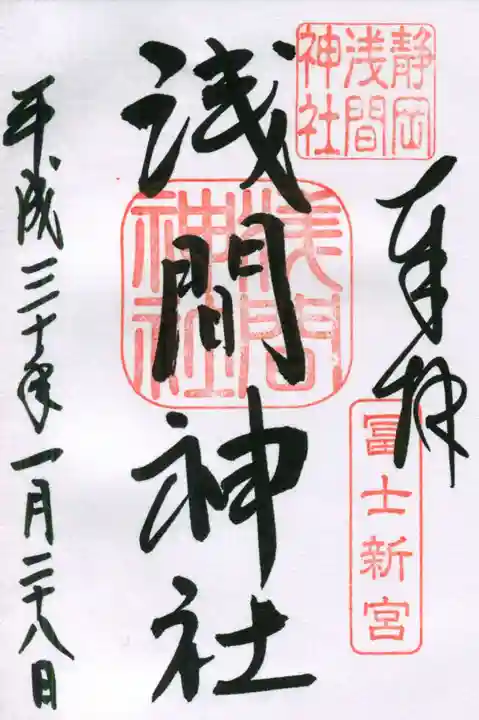 奉拝
静岡
浅間
神社
冨士新宮
浅間神社
浅間
神社
平成三十年一月二十八日